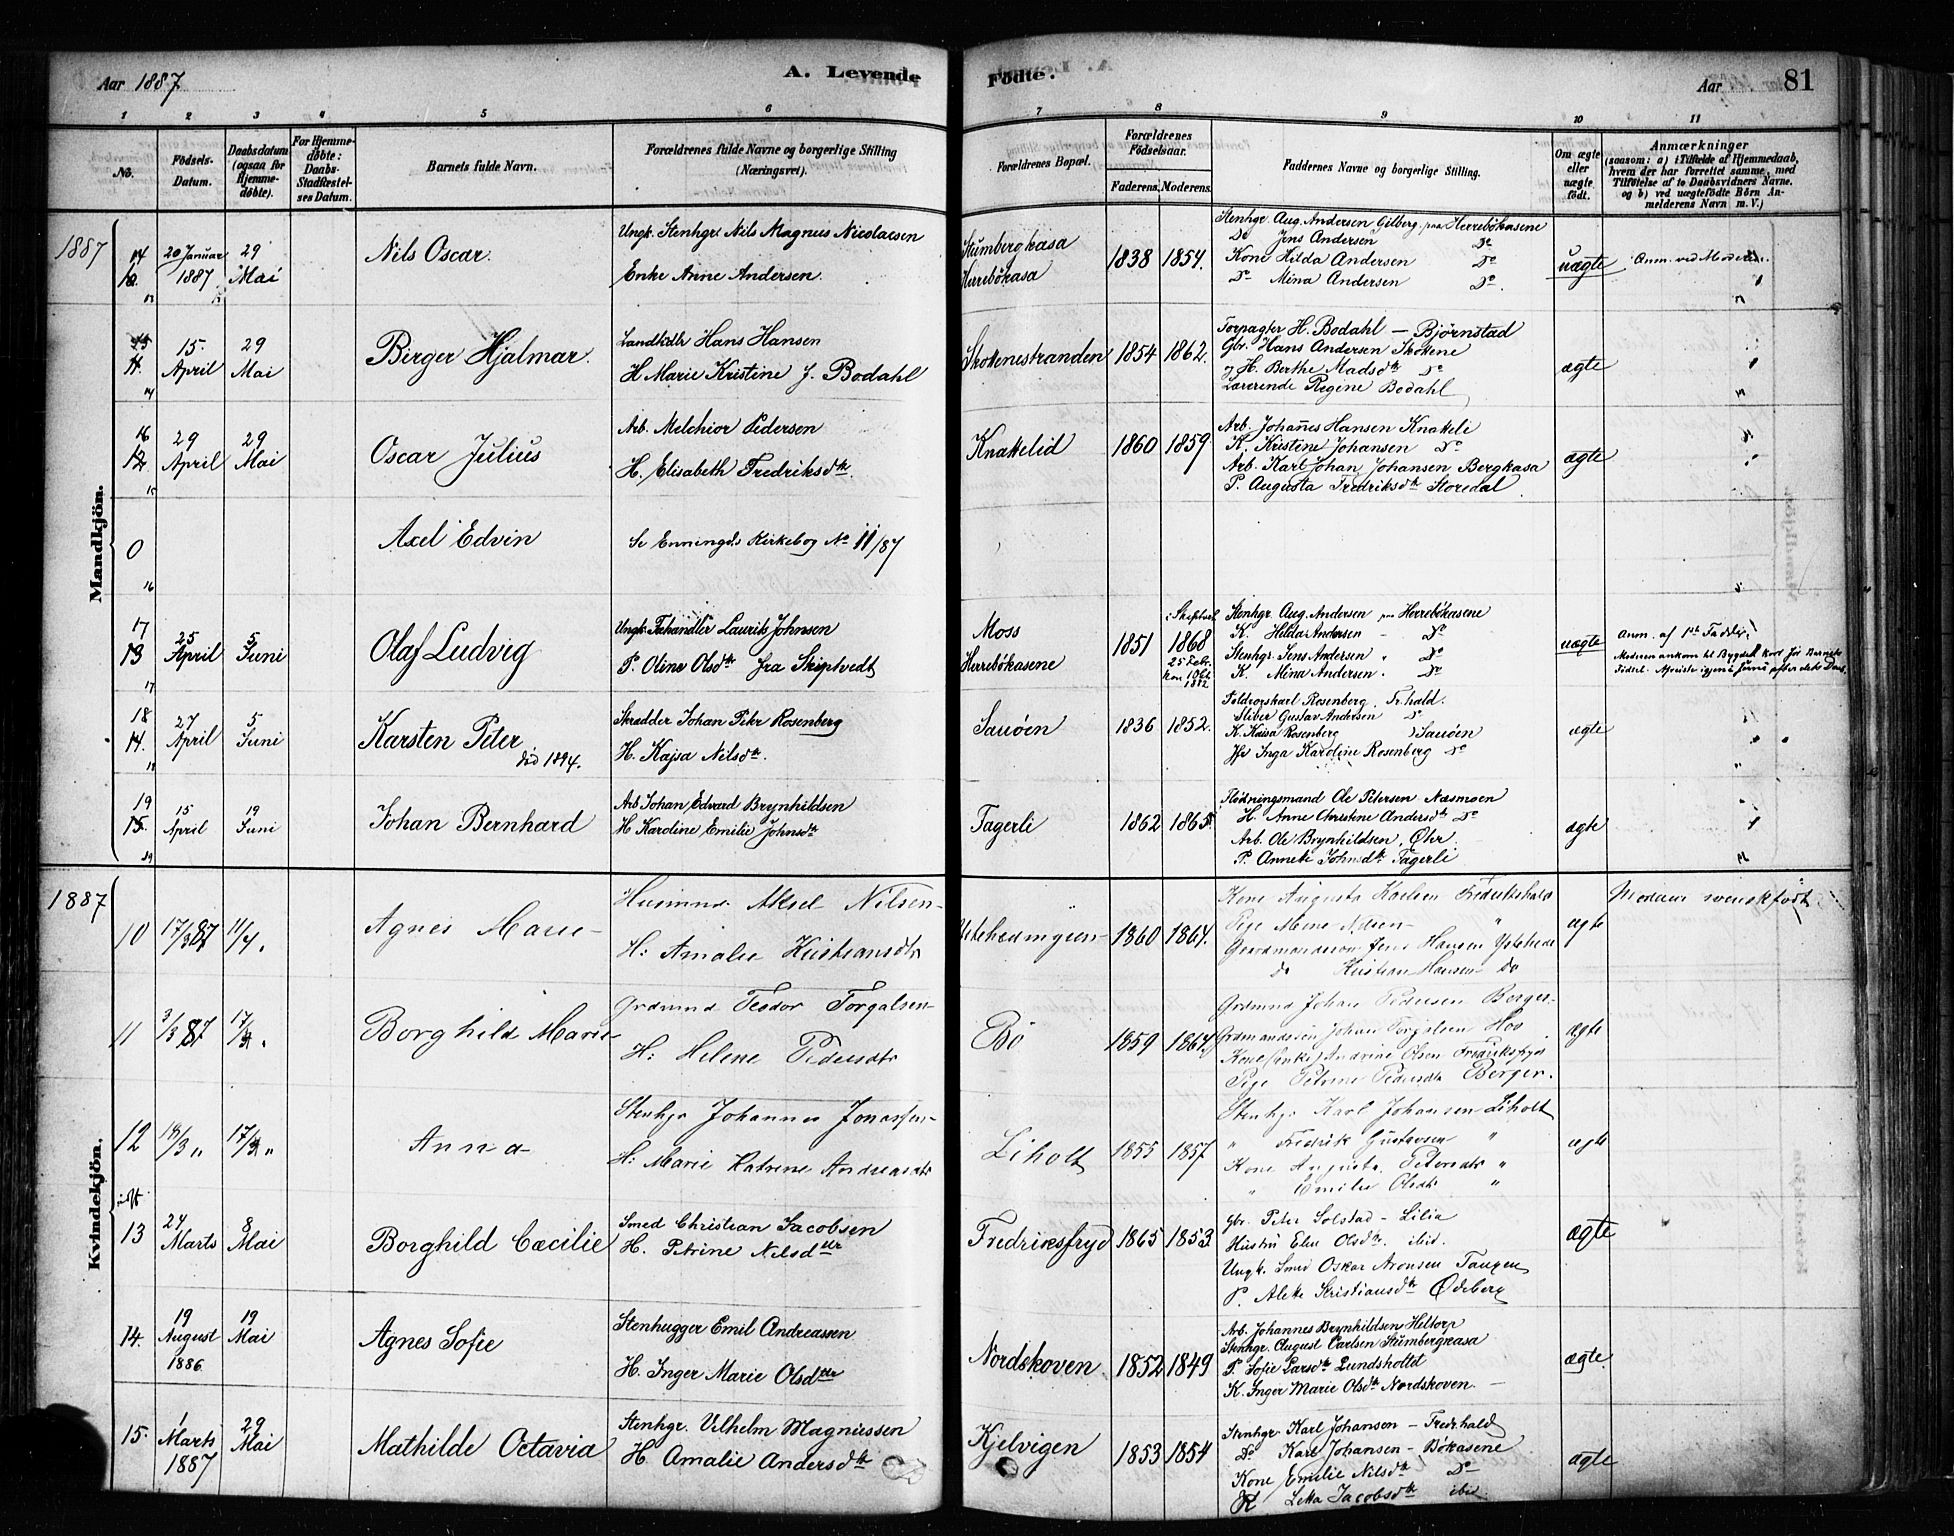 Aar 1887
A. Levende
Födte.
Aar
81
1 2 3 4 5 6 7 8 9 10 11
No.
Födsels-Datum.
Daabsdatum (ogsaa for Hjemme-döbte).
For Hjemme-döbte: Daabs-Stadfæstel-ses Datum.
Barnets fulde Navn.
Forældrenes fulde Navne og borgerlige Stilling (Næringsvei).
Forældrenes Bopæl.
Forældrenes Födselsaar.
Faderens. Moderens.
Faddernes Navne og borgerlige Stilling.
Om ægte eller uægte födt.
Anmærkninger
(saasom: a) i Tilfælde af Hjemmedaab,
hvem der har forrettet samme, med
Tilföielse af to Daabsvidners Navne.
og b) ved uægtefödte Börn An-
melderens Navn m. V.)
Mandkjön.
1887
14
10.
20 Januar 1887
29 Mai
Nils Oscar.
Ungk. Stenhgr. Nils Magnus Nicolaisen
Enke Anne Andersen.
Stumbergkasa
Herrebökasa
1838 1854.
Stenhgr. Aug. Andersen Gilberg paa Herrebökasene
Do Jens Andersen Do
Kone Hilda Andersen Do
Do Mina Andersen Do.
uægte
Anm. ved Moderen.
15
11.
15. April
29 Mai
Birger Hjalmar.
Landhdlr Hans Hansen
H Marie Kristine f. Bodahl
Skottenestranden
1854 1862.
Forpagter H. Bodahl — Björnstad
Gbr. Hans Andersen Skottene
og H. Berthe Madsdtr Do
Lærerinde Regine Bodahl
ægte
16
12
29 April
29 Mai
Oscar Julius
Arb. Melchior Pedersen
H. Elisabeth Fredriksdtr.
Knattelid
1860 1859
Arb. Johañes Hansen Knatteli
K. Kristine Johansen Do
Arb. Karl Johan Johansen Bergkasa
P. Augusta Fredriksdtr Storedal
ægte
0
Axel Edvin
Se Enningdls Kirkebog No 11/87
17
13
25 April
5 Juni
Olaf Ludvig
Ungk. Laurits Johnsen
P. Oline Olsdtr fra Skiptvedt
Moss
Herrebökasene
1851 1868
25 Febr.
1882
Stenhgr. Aug. Andersen paa Herrebökasene
K. Hilda Andersen - Do
Stenhgr. Jens Andersen " Do
K. Mina Andersen. Do
uægte
Anm. af 1ste Fadder.
Moderen ankom til Bygden kort för Barnets
Födsel. igjen i Juni efter dets Daab.
18
14.
27 April
5 Juni
Karsten Peter
död 1894.
Skrædder Johan Peter Rosenberg
H. Kajsa Nilsdtr.
Sauöen
1836 1852.
Rosenberg Fr.hald.
Sliber Gustav Andersen Do
K. Kaisa Rosenberg Sauöen
Inga Karoline Rosenberg Do
ægte
19
15.
15 April
19 Juni
Johan Bernhard
Arb Johan Edvard Brynhildsen
H Karoline Emilie Johnsdtr
Fagerli
1862 1865
Flödningsmand Ole Petersen Næsmoen
H. Anne Christine Andersdtr Do
Arb. Ole Brynhildsen,
P. Annette Johnsdtr Fagerli
ægte
Kvindekjön.
1887
10
17/3 87
11/4.
Agnes Marie
Husmnd Aksel Nilsen
H: Amalie Kristiansdtr
1860 1864.
Kone Augusta Karlsen Fredrikshald
Pige Mine Nilsen "
Gaardmandssøn Jens Hansen Ystehede
do Kristian Hansen do
ægte
Moderen svenskfödt
11
3/3 87
17/4.
Borghild Marie
Grdmnd Teodor Torgalsen
H: Helene Pedersdtr
Bö
1859 1864.
Grdmnd Johan Pedersen Berger
Grdmandssøn Johan Torgalsen Hov
Kone (Enke) Andrine Olsen Fredriksfryd
Pige Petrine Pedersdtr Berger.
ægte
12
18/3 "
17/4 "
Anna
Stenhgr Johannes Jonassen
H: Marie Katrine Andreasdtr
Liholt
1855 1857
Stenhgr Karl Johansen Liholt
" Fredrik Gustavsen "
Kone Augusta Petersdtr "
" Emilie Olsdtr "
ægte
13
24 Marts
8 Mai
Borghild Cæcilie
Smed Christian Jacobsen
H. Petrine Nilsdtr
Fredriksfryd
1865 1853
Gbr. Peter Solstad - Lilia
Hustru Elen Olsdtr. ibid.
Ungk. Smed Oskar Aronsen Tangen
P. Alette Kristiansdtr Ödeberg
ægte
14.
19 August 1886
19 Mai
Agnes Sofie
Stenhugger Emil Andreassen
H. Inger Marie Olsdtr
Nordskoven
1852 1849
Arb. Johannes Brynhildsen Heltorp
Stenhgr. August Carlsen Stumbergkasa
P. Sofie Larsdtr Lundsholtet
K. Inger Marie Olsdtr Nordskoven —
ægte.
15.
1 Marts 1887
29 Mai
Mathilde Octavia
Stenhgr. Vilhelm Magnussen
H Amalie Andersdtr
Kjelvigen
1853 1854
Stenhgr Karl Johansen — Fredrhald
Do Karl Johansen — Bökasene
Kone Emilie Nilsdtr Do
K Letta Jacobsdtr ibid.
ægte